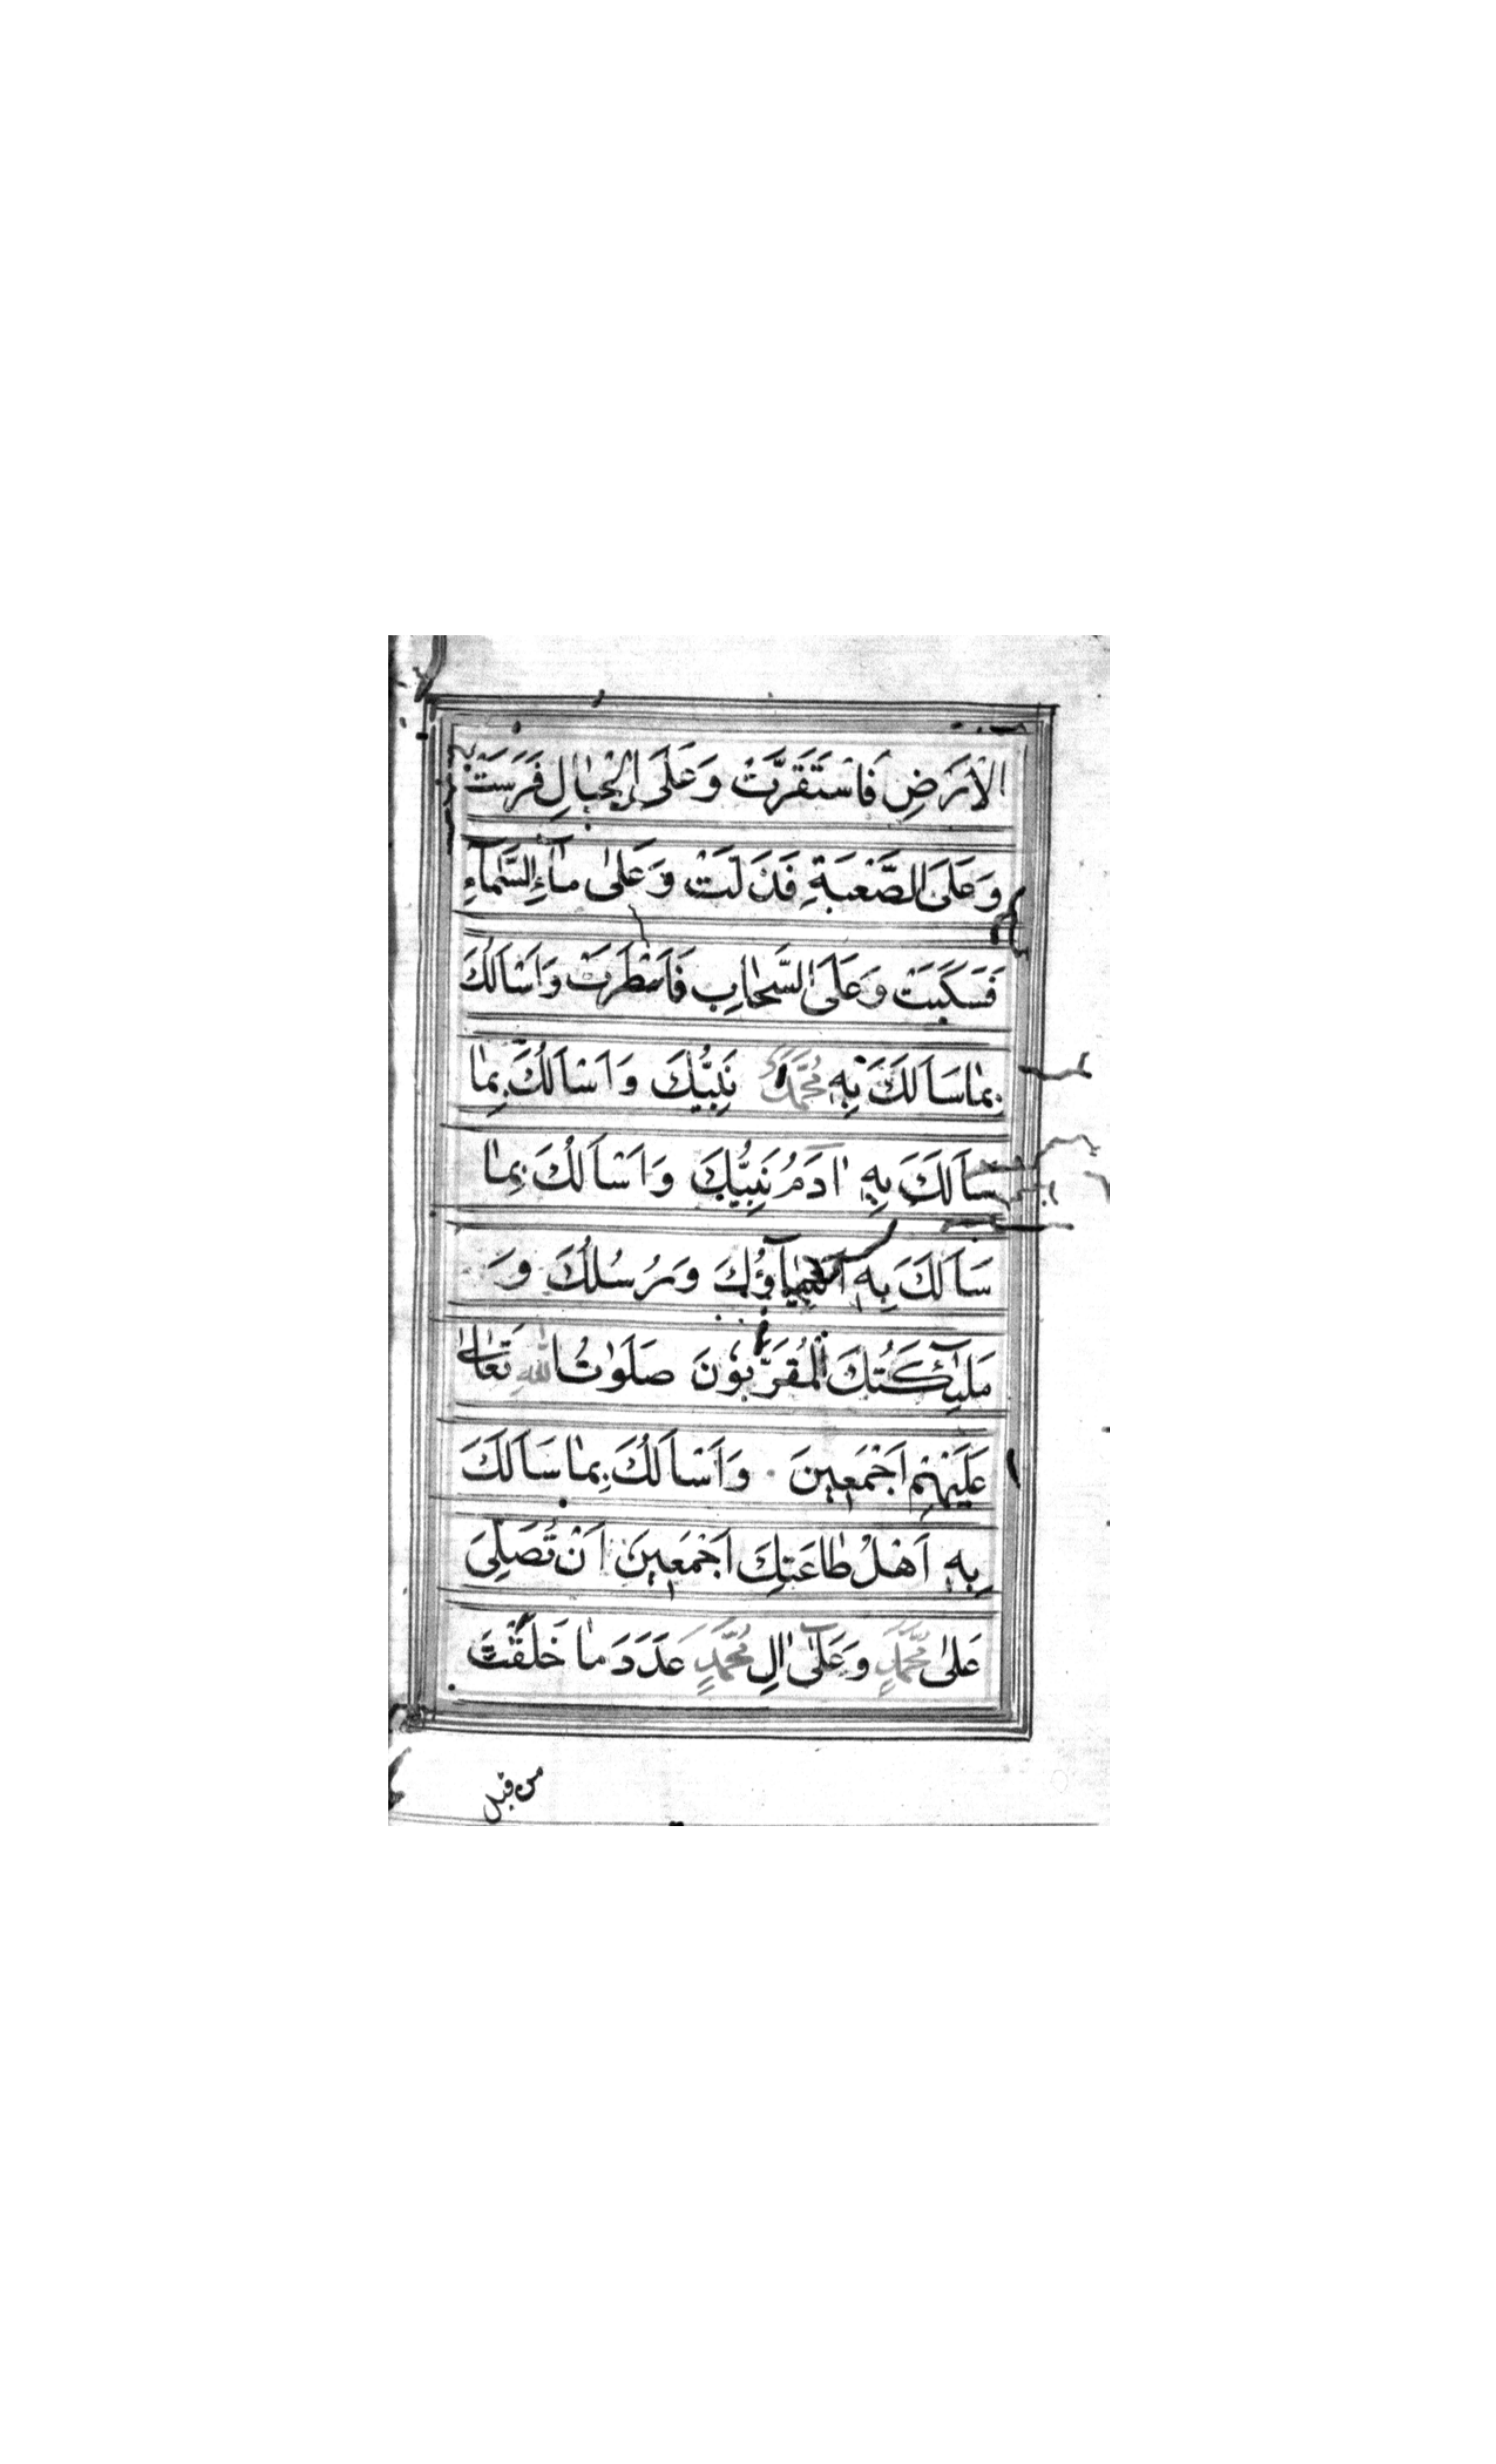 الْاَرْضِ فَاسْتَقَرَّتْ وَعَلَى الْجِبَالِ فَرَسَتْ
وَعَلَى الصَّعْبَةِ فَذَلَّتْ وَعَلٰى مَآءِ السَّمَآءِ
فَسَكَبَتْ وَعَلَى السَّحَابِ فَاَمْطَرَتْ وَاَسْاَلُكَ
بِمَا سَاَلَكَ بِهٖ مُحَمَّدٌ نَبِيُّكَ وَاَسْاَلُكَ بِمَا
سَاَلَكَ بِهٖ اٰدَمُ نَبِيُّكَ وَاَسْاَلُكَ بِمَا
سَاَلَكَ بِهٖ اَنْبِيَآؤُكَ وَرُسُلُكَ وَ
مَلٰٓئِكَتُكَ الْمُقَرَّبُوْنَ صَلَوٰتُ اللهِ تَعَالٰى
عَلَيْهِمْ اَجْمَعِيْنَ وَاَسْاَلُكَ بِمَا سَاَلَكَ
بِهٖ اَهْلُ طَاعَتِكَ اَجْمَعِيْنَ اَنْ تُصَلِّيَ
عَلٰى مُحَمَّدٍ وَعَلٰٓى اٰلِ مُحَمَّدٍ عَدَدَ مَا خَلَقْتَ
من قبل